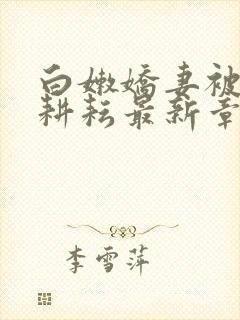 白嫩娇妻被
耕耘最新章
李雪萍